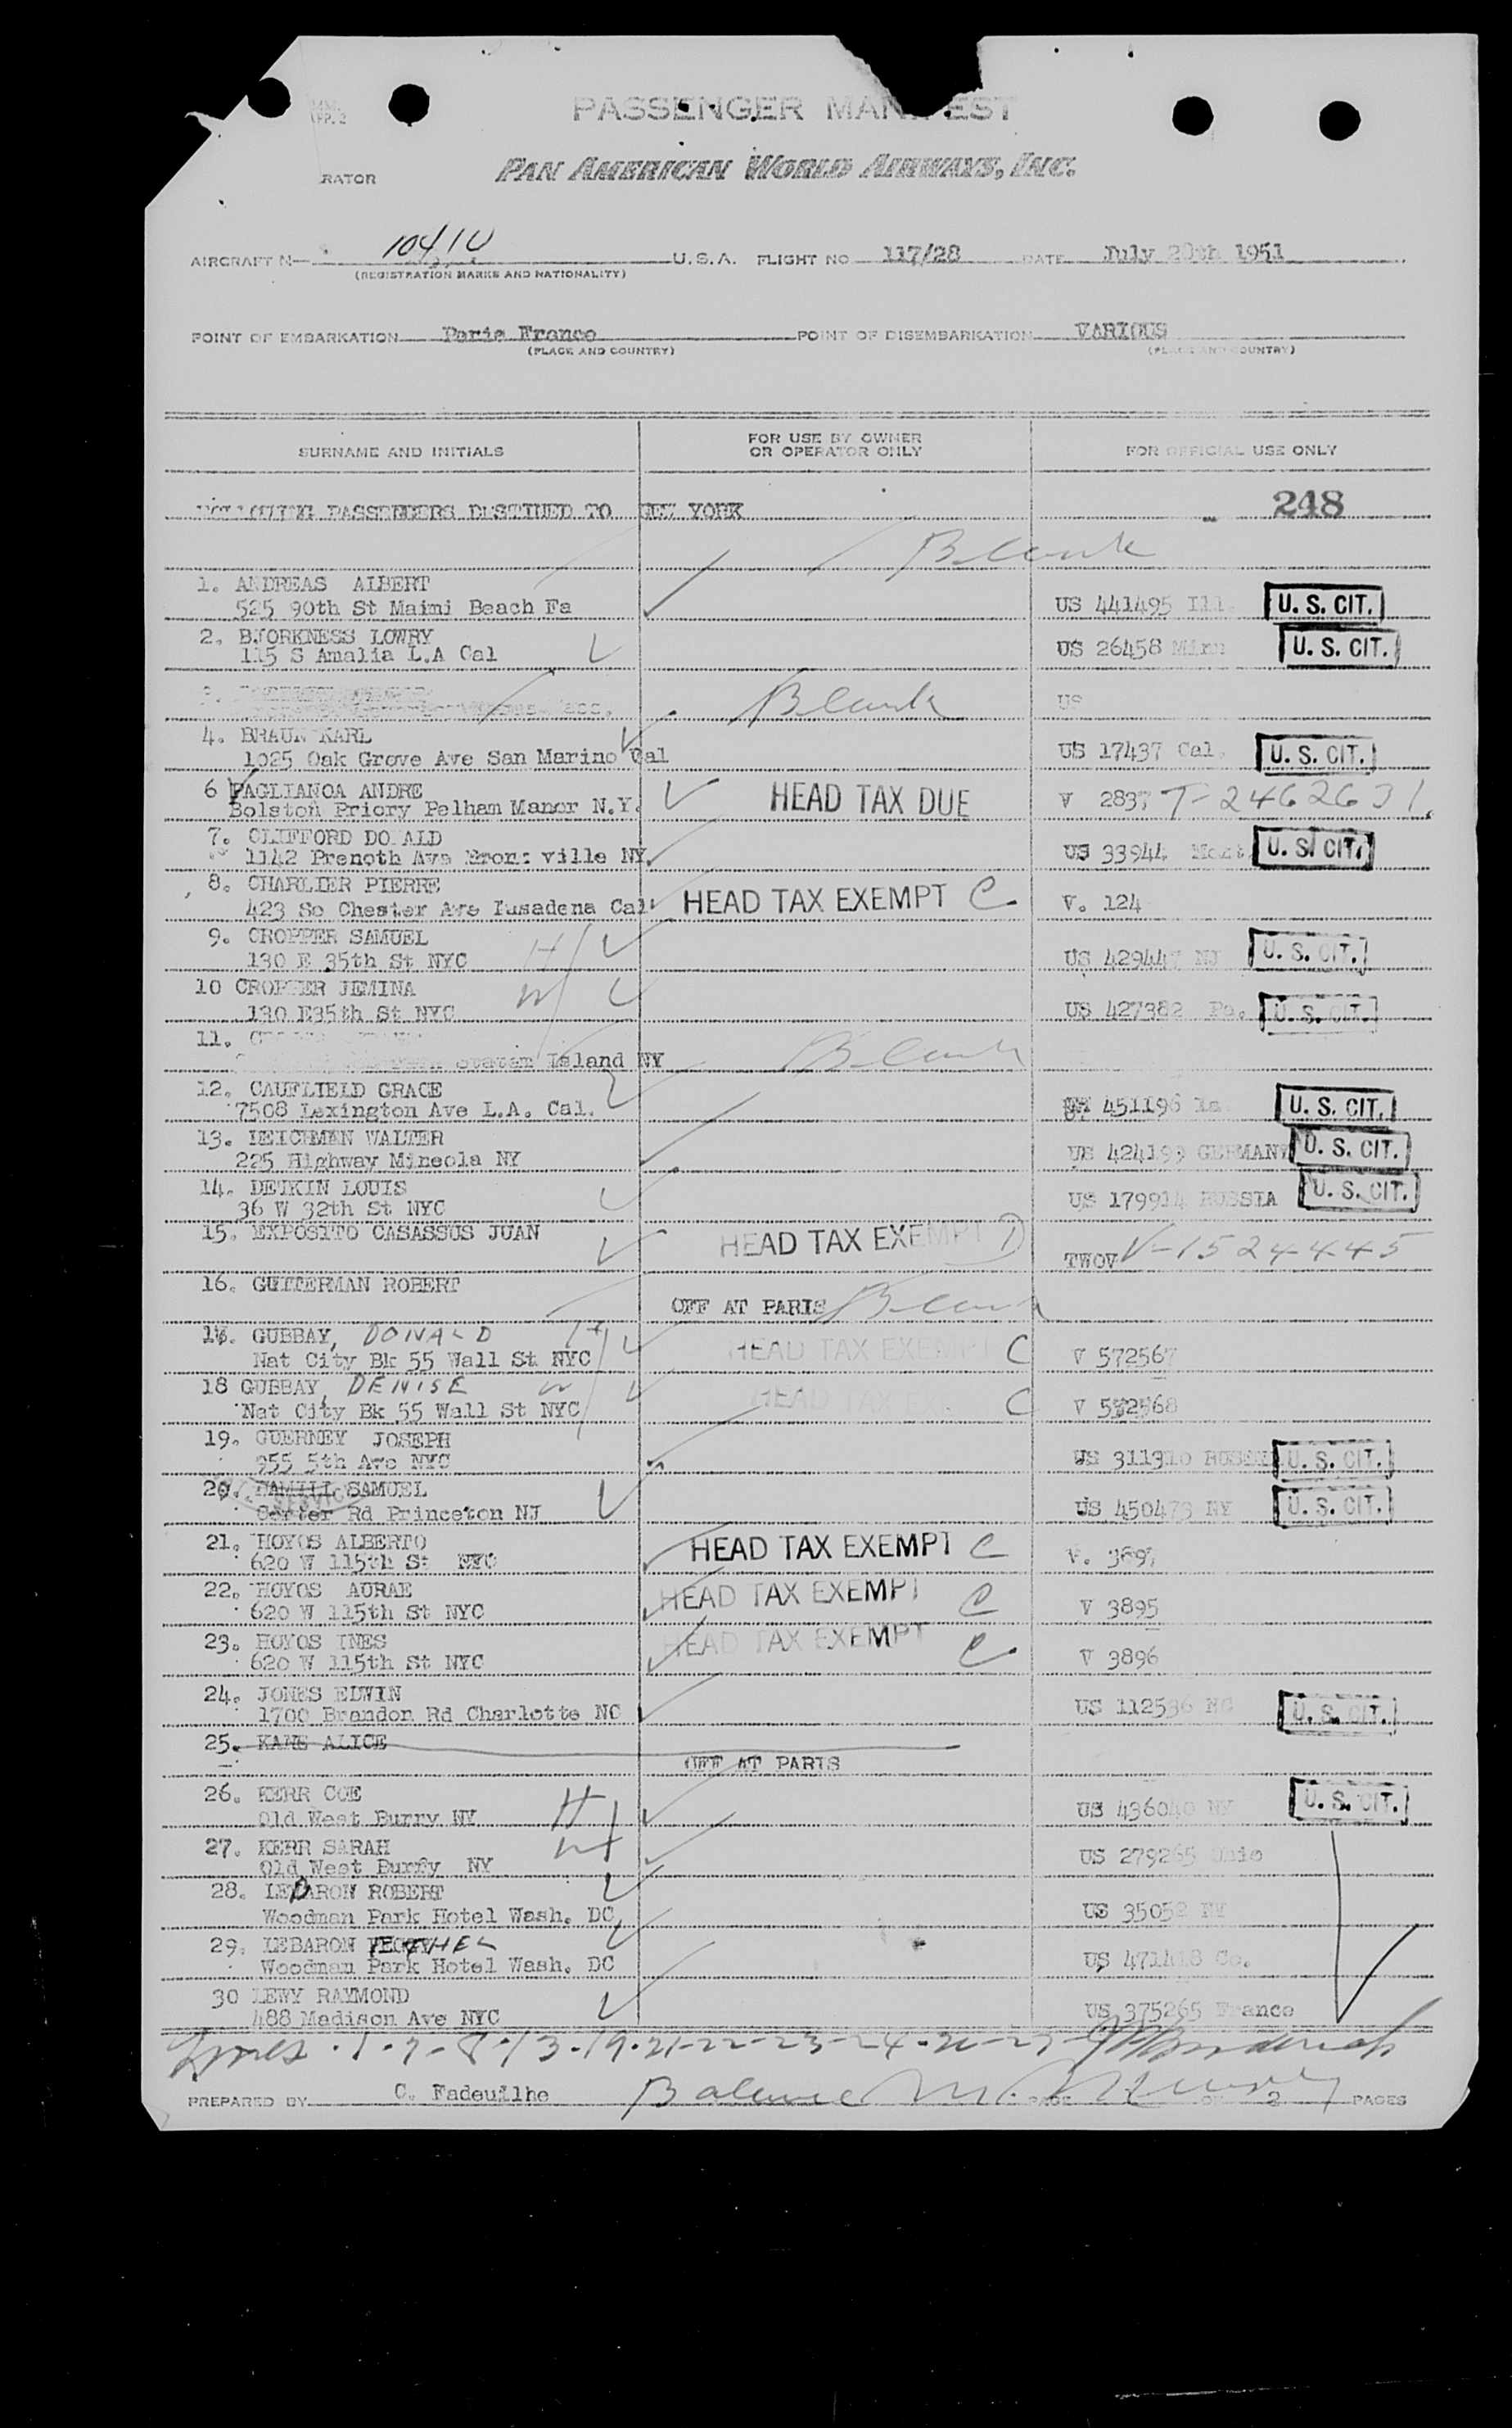 PASSENGER MANIFEST
RATOR
PAN AMERICAN WORLD AIRWAYS, INC.
AIRCRAFT N— 1041U U.S.A. FLIGHT NO 117/28 DATE July 28th 1951
(REGISTRATION MARKS AND NATIONALITY)
POINT OF EMBARKATION Paris France POINT OF DISEMBARKATION VARIOUS
(PLACE AND COUNTRY) (PLACE AND COUNTRY)
SURNAME AND INITIALS FOR USE BY OWNER OR OPERATOR ONLY FOR OFFICIAL USE ONLY
FOLLOWING PASSENGERS DESTINED TO NEW YORK 248
Blank
1. ANDREAS ALBERT
525 90th St Maimi Beach Fa US 441495 Ill. U. S. CIT.
2. BJORKNESS LOWRY
115 S Amalia L.A Cal US 26458 Minn U. S. CIT.
3. Blank US
4. BRAUN KARL
1025 Oak Grove Ave San Marino Cal US 17437 Cal. U. S. CIT.
6 PAGLIANOA ANDRE
Bolston Priory Pelham Manor N.Y. HEAD TAX DUE V 2837 T-2462631.
7. CLIFFORD DO ALD
1142 Prenoth Ave Bron: ville NY. US 33944 U. S. CIT.
8. CHARLIER PIERRE
423 So Chester Ave Pasadena Cal HEAD TAX EXEMPT C V. 124
9. CROPPER SAMUEL H
130 E 35th St NYC US 429447 NJ U. S. CIT.
10 CROPPER JEMINA W
130 E35th St NYC US 427382 Pa. U. S. CIT.
11.
Staten Island NY Blank
12. CAUFLIELD GRACE
7508 Lexington Ave L.A. Cal. US 451196 Ia U. S. CIT.
13. DEICHMEN WALTER
225 Highway Mineola NY US 424199 GERMANY U. S. CIT.
14. DEUKIN LOUIS
36 W 32th St NYC US 179914 RUSSIA U. S. CIT.
15. EXPOSITO CASASSUS JUAN HEAD TAX EXEMPT
TWOV V-1524445
16. GUTTERMAN ROBERT
OFF AT PARIS Blank
17. GUBBAY, DONALD H
Nat City Bk 55 Wall St NYC HEAD TAX EXEMPT C V 572567
18 GUBBAY, DENISE W
Nat City Bk 55 Wall St NYC HEAD TAX EXE C V 572568
19. GUERNEY JOSEPH
955 5th Ave NYC US 311310 U. S. CIT.
20. HAMILL SAMUEL
Carter Rd Princeton NJ US 450473 NY U. S. CIT.
21. HOYOS ALBERTO
620 W 115th St NYC HEAD TAX EXEMPT C V. 3897
22. HOYOS AURAE
620 W 115th St NYC HEAD TAX EXEMPT C V 3895
23. HOYOS INES
620 W 115th St NYC HEAD TAX EXEMPT C V 3896
24. JONES EDWIN
1700 Brandon Rd Charlotte NC US 112536 NC U. S. CIT.
25. KANE ALICE
OFF AT PARIS
26. KERR COE H
Old West Burry NY US 436040 NY U. S. CIT.
27. KERR SARAH W
Old West Burry NY US 279265 Ohio
28. LEBARON ROBERT
Woodman Park Hotel Wash. DC US 35052 NY
29. LEBARON
Woodman Park Hotel Wash. DC US 471418 Co.
30 LEWY RAYMOND
488 Madison Ave NYC US 375265 France
Lines 1-7-8-13-19-21-22-23-24-26-27-
PREPARED BY C. Fadeuilhe Balance PAGE OF 2 PAGES